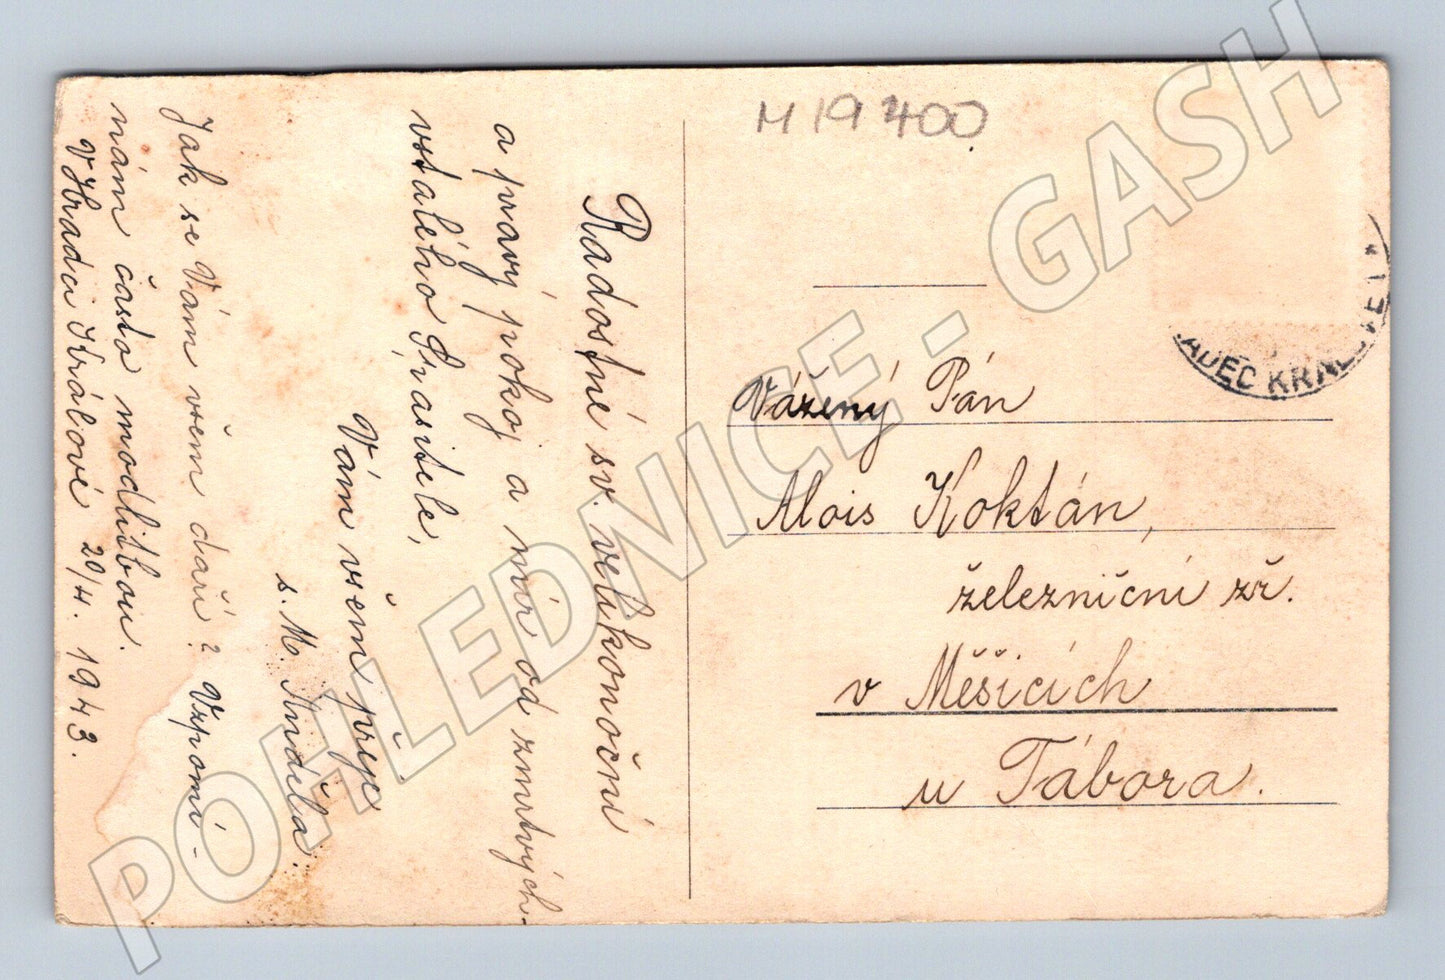 M 19 400
HRADEC KRÁLOVÉ 1
Radostné sv. velikonoční
a pravý pokoj a mír od zmrtvých-
vstalého Spasitele,
Vám všem přeje
s. M. Anděla.
Jak se Vám všem daří? Vzpomí-
nám často modlitbou.
V Hradci Králové 20/4. 1943.
Vážený Pán
Alois Koktán,
železniční zř.
v Měšicích
u Tábora.
POHLEDNICE - GASH